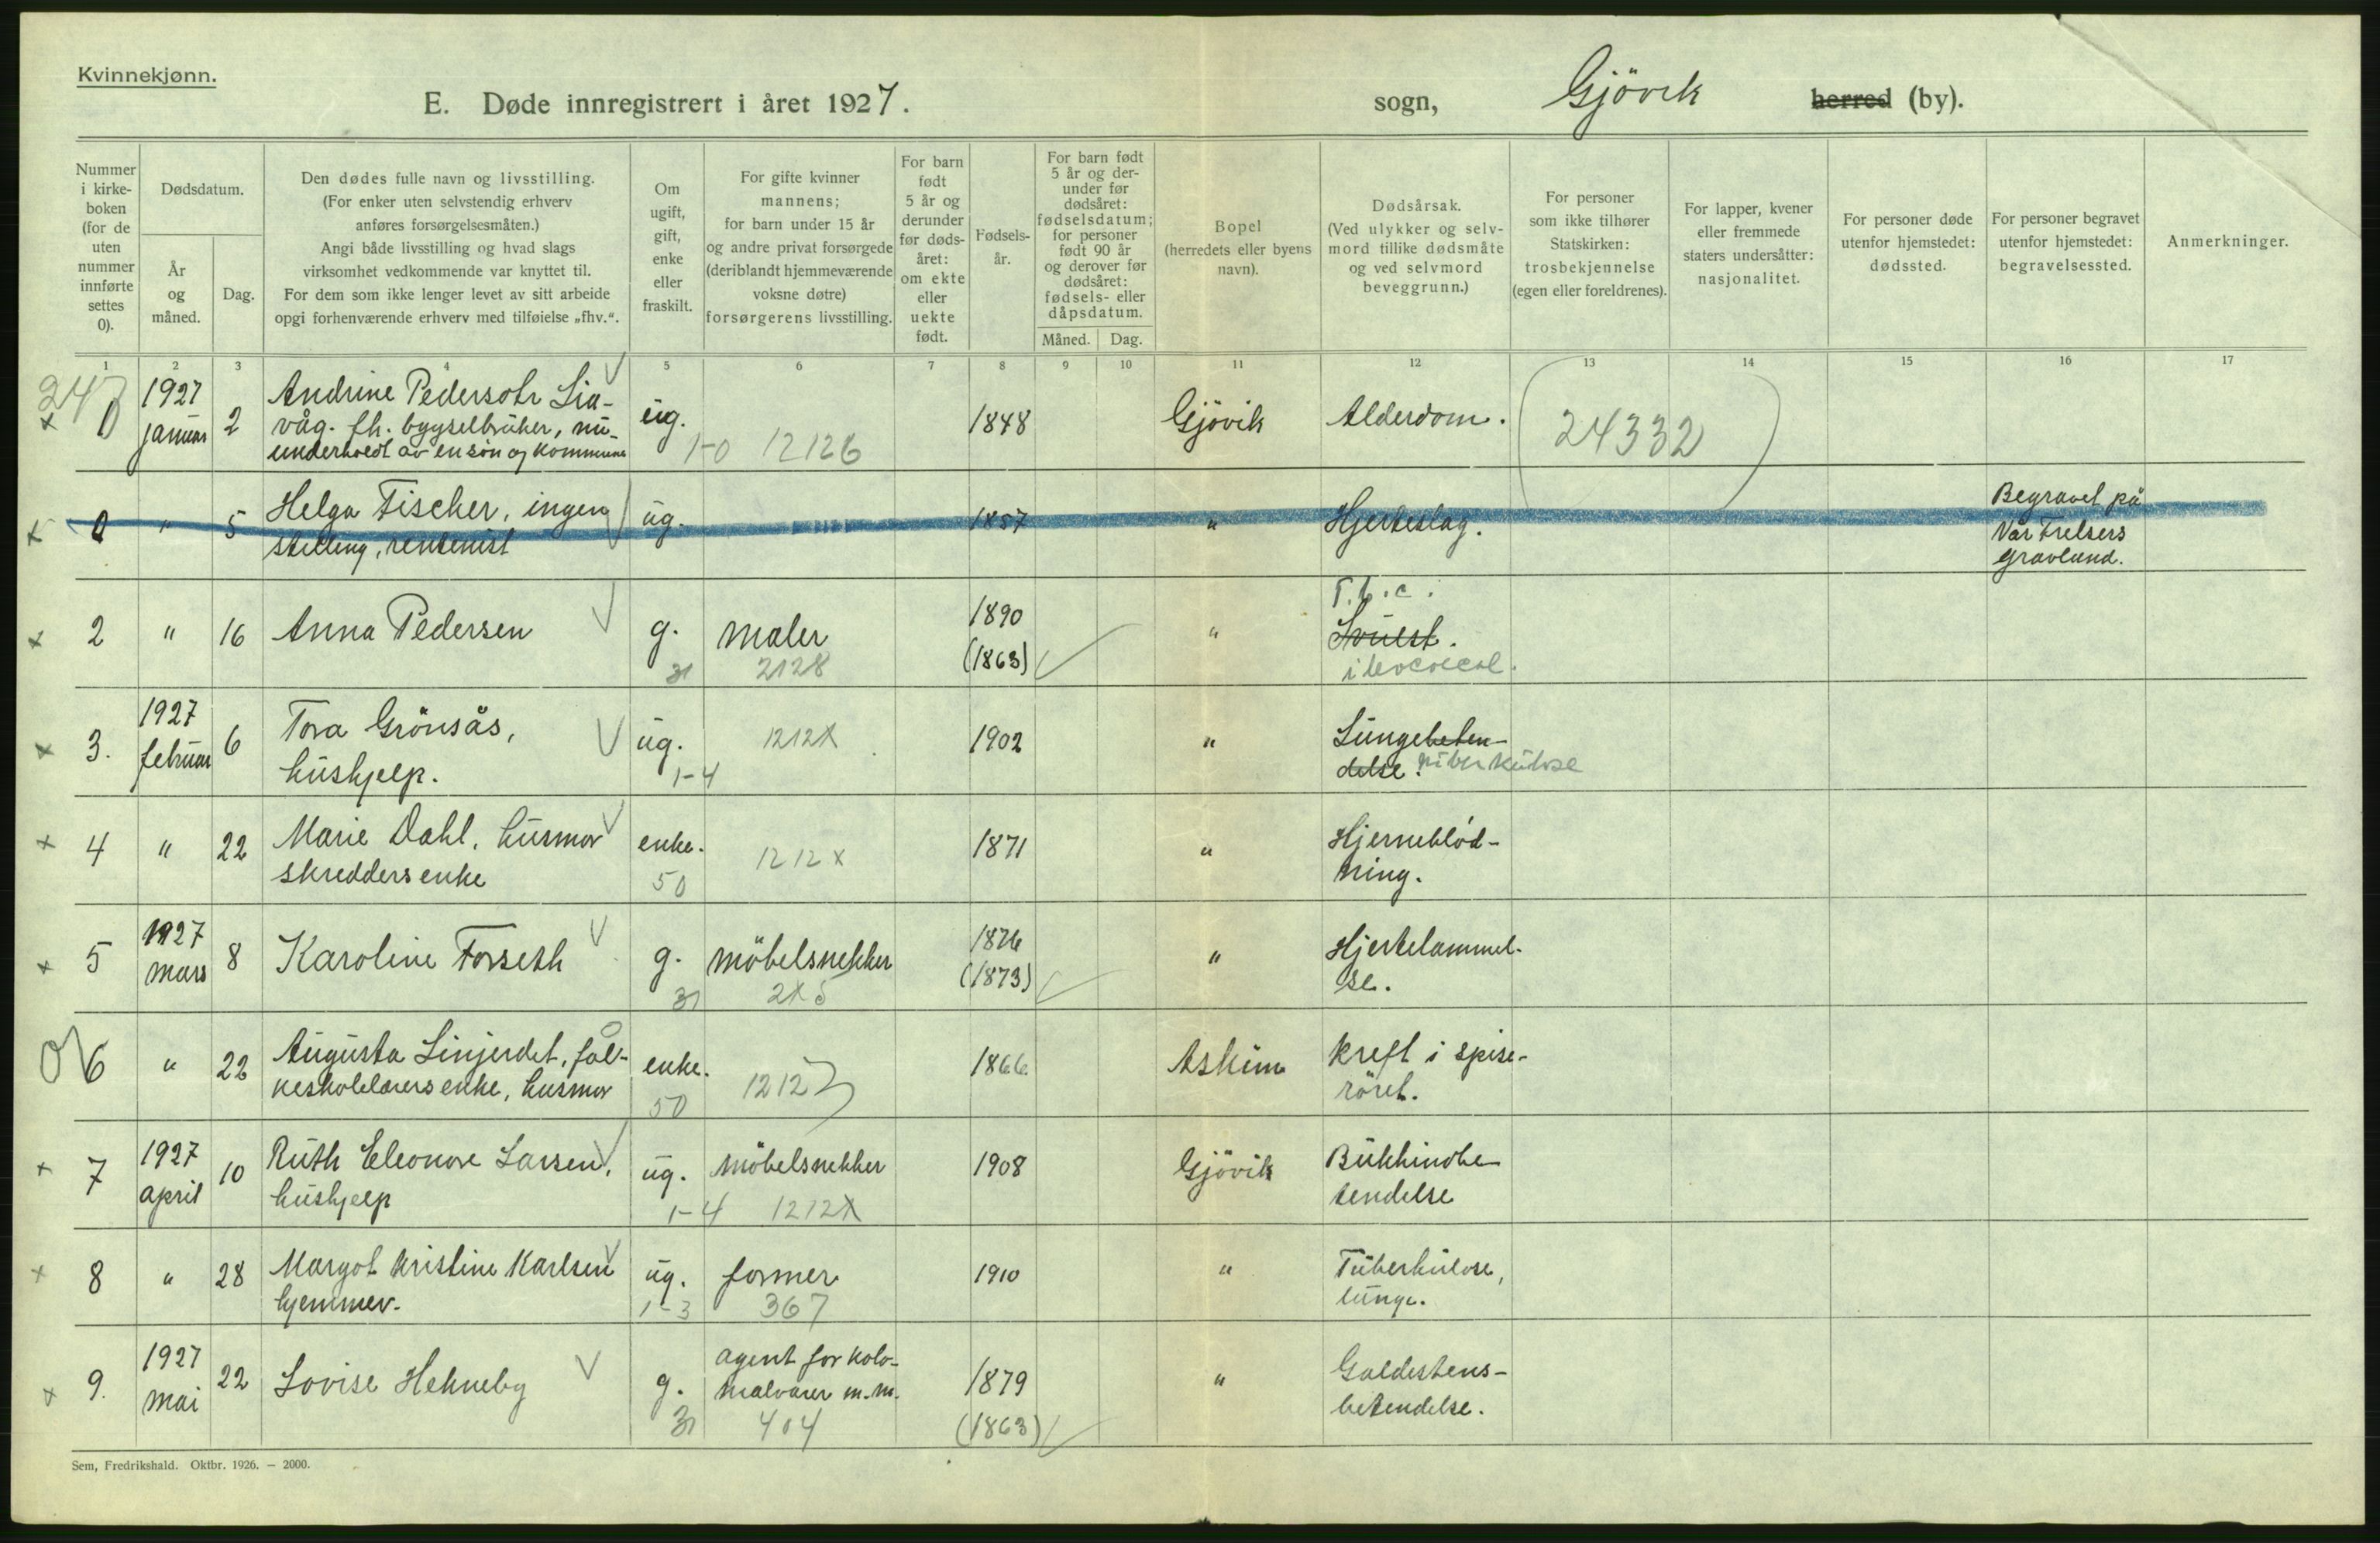 Kvinnekjønn.
E. Døde innregistrert i året 1927.
sogn, Gjövik herred (by).
Nummer i kirke-boken (for de uten nummer innførte settes 0).
Dødsdatum.
År og måned.
Dag.
Den dødes fulle navn og livsstilling.
(For enker uten selvstendig erhverv
anføres forsørgelsesmåten.)
Angi både livsstilling og hvad slags
virksomhet vedkommende var knyttet til.
For dem som ikke lenger levet av sitt arbeide
opgi forhenværende erhverv med tilføielse „fhv.“.
Om ugift, gift, enke eller fraskilt.
For gifte kvinner
mannens;
for barn under 15 år
og andre privat forsørgede
(deriblandt hjemmeværende
voksne døtre)
forsørgerens livsstilling.
For barn født 5 år og derunder før døds-året: om ekte eller uekte født.
Fødsels-år.
For barn født
5 år og der-
under før
dødsåret:
fødselsdatum;
for personer
født 90 år
og derover før
dødsåret:
fødsels- eller
dåpsdatum.
Måned. Dag.
Bopel
(herredets eller byens
navn).
Dødsårsak.
(Ved ulykker og selv-
mord tillike dødsmåte
og ved selvmord
beveggrunn.)
For personer
som ikke tilhører
Statskirken:
trosbekjennelse
(egen eller foreldrenes).
For lapper, kvener
eller fremmede
staters undersåtter:
nasjonalitet.
For personer døde
utenfor hjemstedet:
dødssted.
For personer begravet
utenfor hjemstedet:
begravelsessted.
Anmerkninger.
1 2 3 4 5 6 7 8 9 10 11 12 13 14 15 16 17
1927 januar 2 Andrine Pedersdtr Lia-
våg. fh. bygselbruker, nu
underholdt av en sön og kommune
ug. 1-0 12126 1848 Gjövik Alderdom. 24332
0 " 5 Helga Fischer, ingen
stilling, rentenist
ug. 1857 " Hjerteslag.
Begravet på
Vår Frelsers
gravlund.
2 " 16 Anna Pedersen g. maler 1890 "
31 2128 (1863)
T.b.c.
Svulst.
3. 1927 februar 6 Tora Grönsås,
hushjelp.
ug. 1-4 1212X 1902 "
Lungebeten-
delse. tuberkulose
4 " 22 Marie Dahl, husmor
skreddersenke
enke. 50 1212x 1871 "
Hjerneblöd-
ning.
5 1927 mars 8 Karoline Forseth g. möbelsnekker 1876 "
31 2X5 (1873)
Hjertelammel-
se.
6 " 22 Augusta Linjerdet, fol-
keskolelærersenke, husmor
enke. 50 1212 1866 Askim
Kreft i spise-
röret.
7 1927 april 10 Ruth Eleonore Larsen,
hushjelp
ug. möbelsnekker 1908 Gjövik
1-4 1212X
Bukhindbe
tendelse
8 " 28 Margot Kristine Karlsen
hjemmev.
ug. former 1910 "
1-3 367
Tuberkulose,
lunge.
9. 1927 mai 22 Lovise Hekneby g.
agent for kolo-
nialvarer m.m.
31 404 1879 (1863) "
Galdestens-
betendelse.
Sem, Fredrikshald. Oktbr. 1926. — 2000.